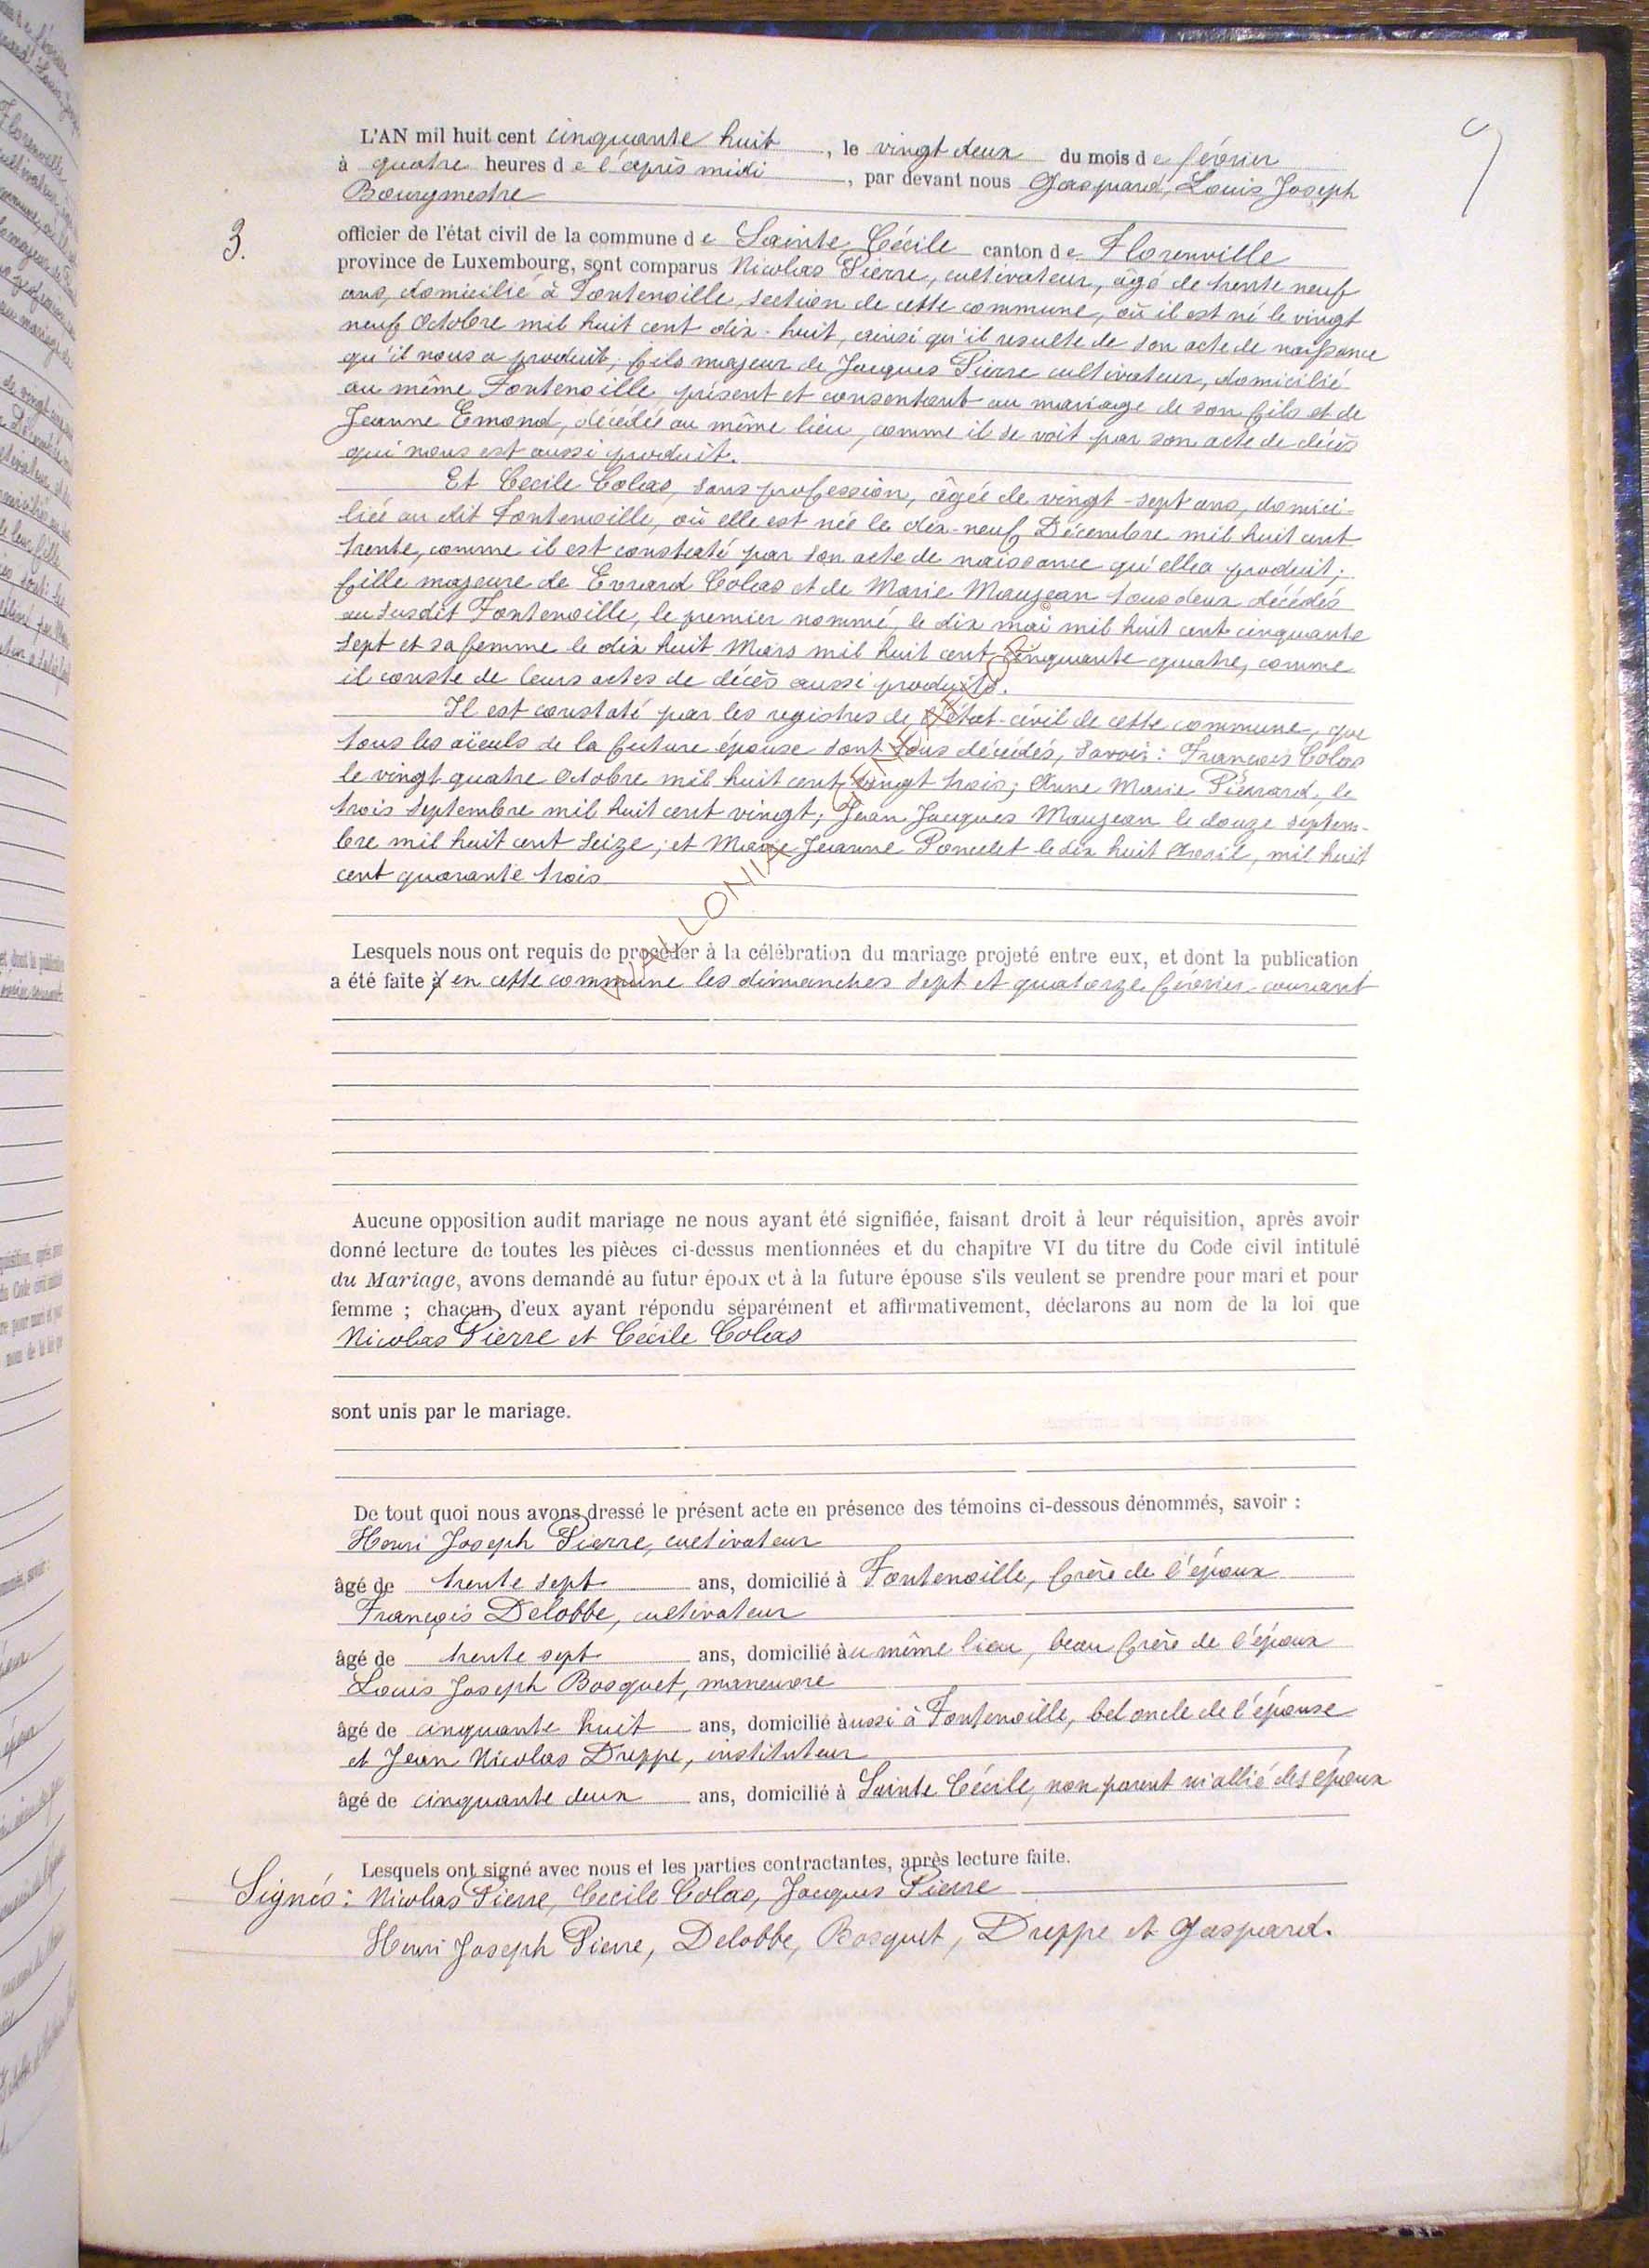 L'AN mil huit cent cinquante huit, le vingt deux du mois de février
à quatre heures de l'après midi, par devant nous Gaspard, Louis Joseph
Bourgmestre
3. officier de l'état civil de la commune de Sainte Cécile canton de Florenville
province de Luxembourg, sont comparus Nicolas Pierre, cultivateur, âgé de trente neuf
ans, domicilié à Fontenoille, section de cette commune, où il est né le vingt
neuf Octobre mil huit cent dix-huit, ainsi qu'il resulte de son acte de naissance
qu'il nous a produit; fils majeur de Jacques Pierre cultivateur, domicilié
au même Fontenoille, présent et consentant au mariage de son fils et de
Jeanne Emond, décédée au même lieu, comme il se voit par son acte de décès
qui nous est aussi produit.
Et Cecile Colas, sans profession, âgée de vingt-sept ans, domici-
liée au dit Fontenoille, où elle est née le dix-neuf Décembre mil huit cent
trente, comme il est constaté par son acte de naissance qu'elle a produit;
fille majeure de Evrard Colas et de Marie Maujean tous deux décédés
au susdit Fontenoille, le premier nommé, le dix mai mil huit cent cinquante
sept et sa femme le dix huit Mars mil huit cent cinquante quatre, comme
il conste de leurs actes de décès aussi produits.
Il est constaté par les registres de l'état-civil de cette commune, que
tous les aïeuls de la future épouse sont tous décédés, savoir: François Colas
le vingt quatre Octobre mil huit cent vingt trois; Anne Marie Pierrard, le
trois Septembre mil huit cent vingt; Jean Jacques Maujean le douze septem-
bre mil huit cent seize; et Marie Jeanne Poncelet le dix huit Avril, mil huit
cent quarante trois
WALLONIA GENEALOGY
©
Lesquels nous ont requis de procéder à la célébration du mariage projeté entre eux, et dont la publication
a été faite à en cette commune les dimanches sept et quatorze février courant
Aucune opposition audit mariage ne nous ayant été signifiée, faisant droit à leur réquisition, après avoir
donné lecture de toutes les pièces ci-dessus mentionnées et du chapitre VI du titre du Code civil intitulé
du Mariage, avons demandé au futur époux et à la future épouse s'ils veulent se prendre pour mari et pour
femme ; chacun d'eux ayant répondu séparément et affirmativement, déclarons au nom de la loi que
Nicolas Pierre et Cécile Colas
sont unis par le mariage.
De tout quoi nous avons dressé le présent acte en présence des témoins ci-dessous dénommés, savoir :
Henri Joseph Pierre, cultivateur
âgé de trente sept ans, domicilié à Fontenoille, frère de l'époux
François Delobbe, cultivateur
âgé de trente sept ans, domicilié au même lieu, beau frère de l'époux
Louis Joseph Bosquet, maneuvre
âgé de cinquante huit ans, domicilié aussi à Fontenoille, bel oncle de l'épouse
et Jean Nicolas Dreppe, instituteur
âgé de cinquante deux ans, domicilié à Sainte Cécile, non parent ni allié des époux
Lesquels ont signé avec nous et les parties contractantes, après lecture faite.
Signés: Nicolas Pierre, Cecile Colas, Jacques Pierre
Henri Joseph Pierre, Delobbe, Bosquet, Dreppe et Gaspard.